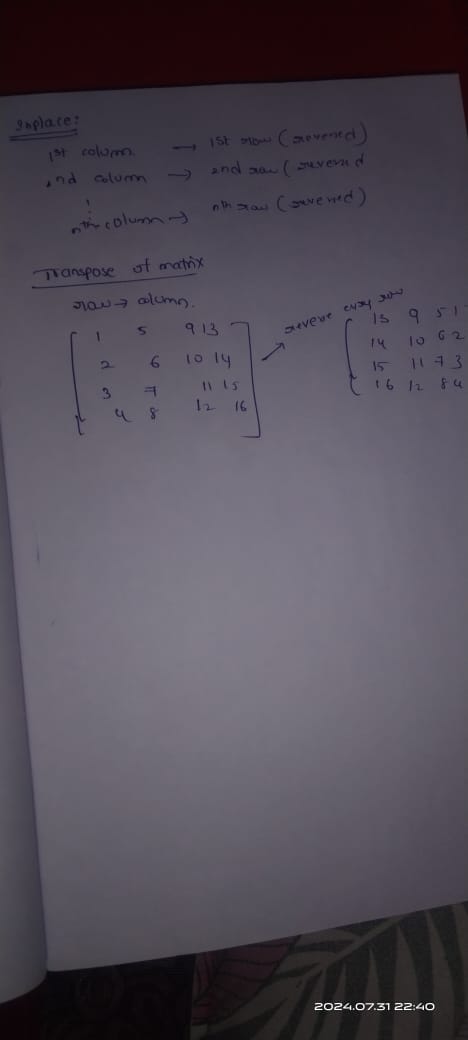 Inplace:
1st column → 1st row (reversed)
2nd column → 2nd row (reversed
nth column → nth row (reversed)
Transpose of matrix
row → column.
reverse every row
1 5 9 13
2 6 10 14
3 7 11 15
4 8 12 16
13 9 5 1
14 10 6 2
15 11 7 3
16 12 8 4
2024.07.31 22:40